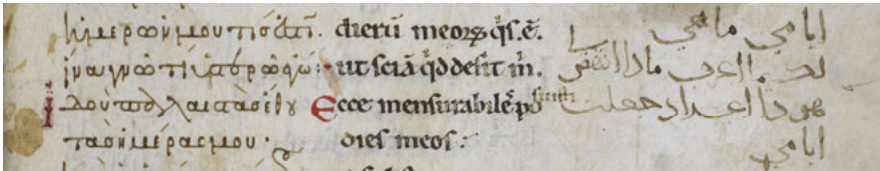 ἡμερῶν μου τίς ἐστὶ. dierū meoꝝ q̄s. ē. ايامي ما هي
ἵνα γνῶ τί ὑστερῶ ἐγώ: ut sciā qd desit m. لكيما اعرف ماذا انتقص
Ἰδοὺ παλαιστὰς ἔθου Ecce mensurabilē posuisti هوذا اعداد جعلت
τὰς ἡμέρας μου · dies meos : ايامي